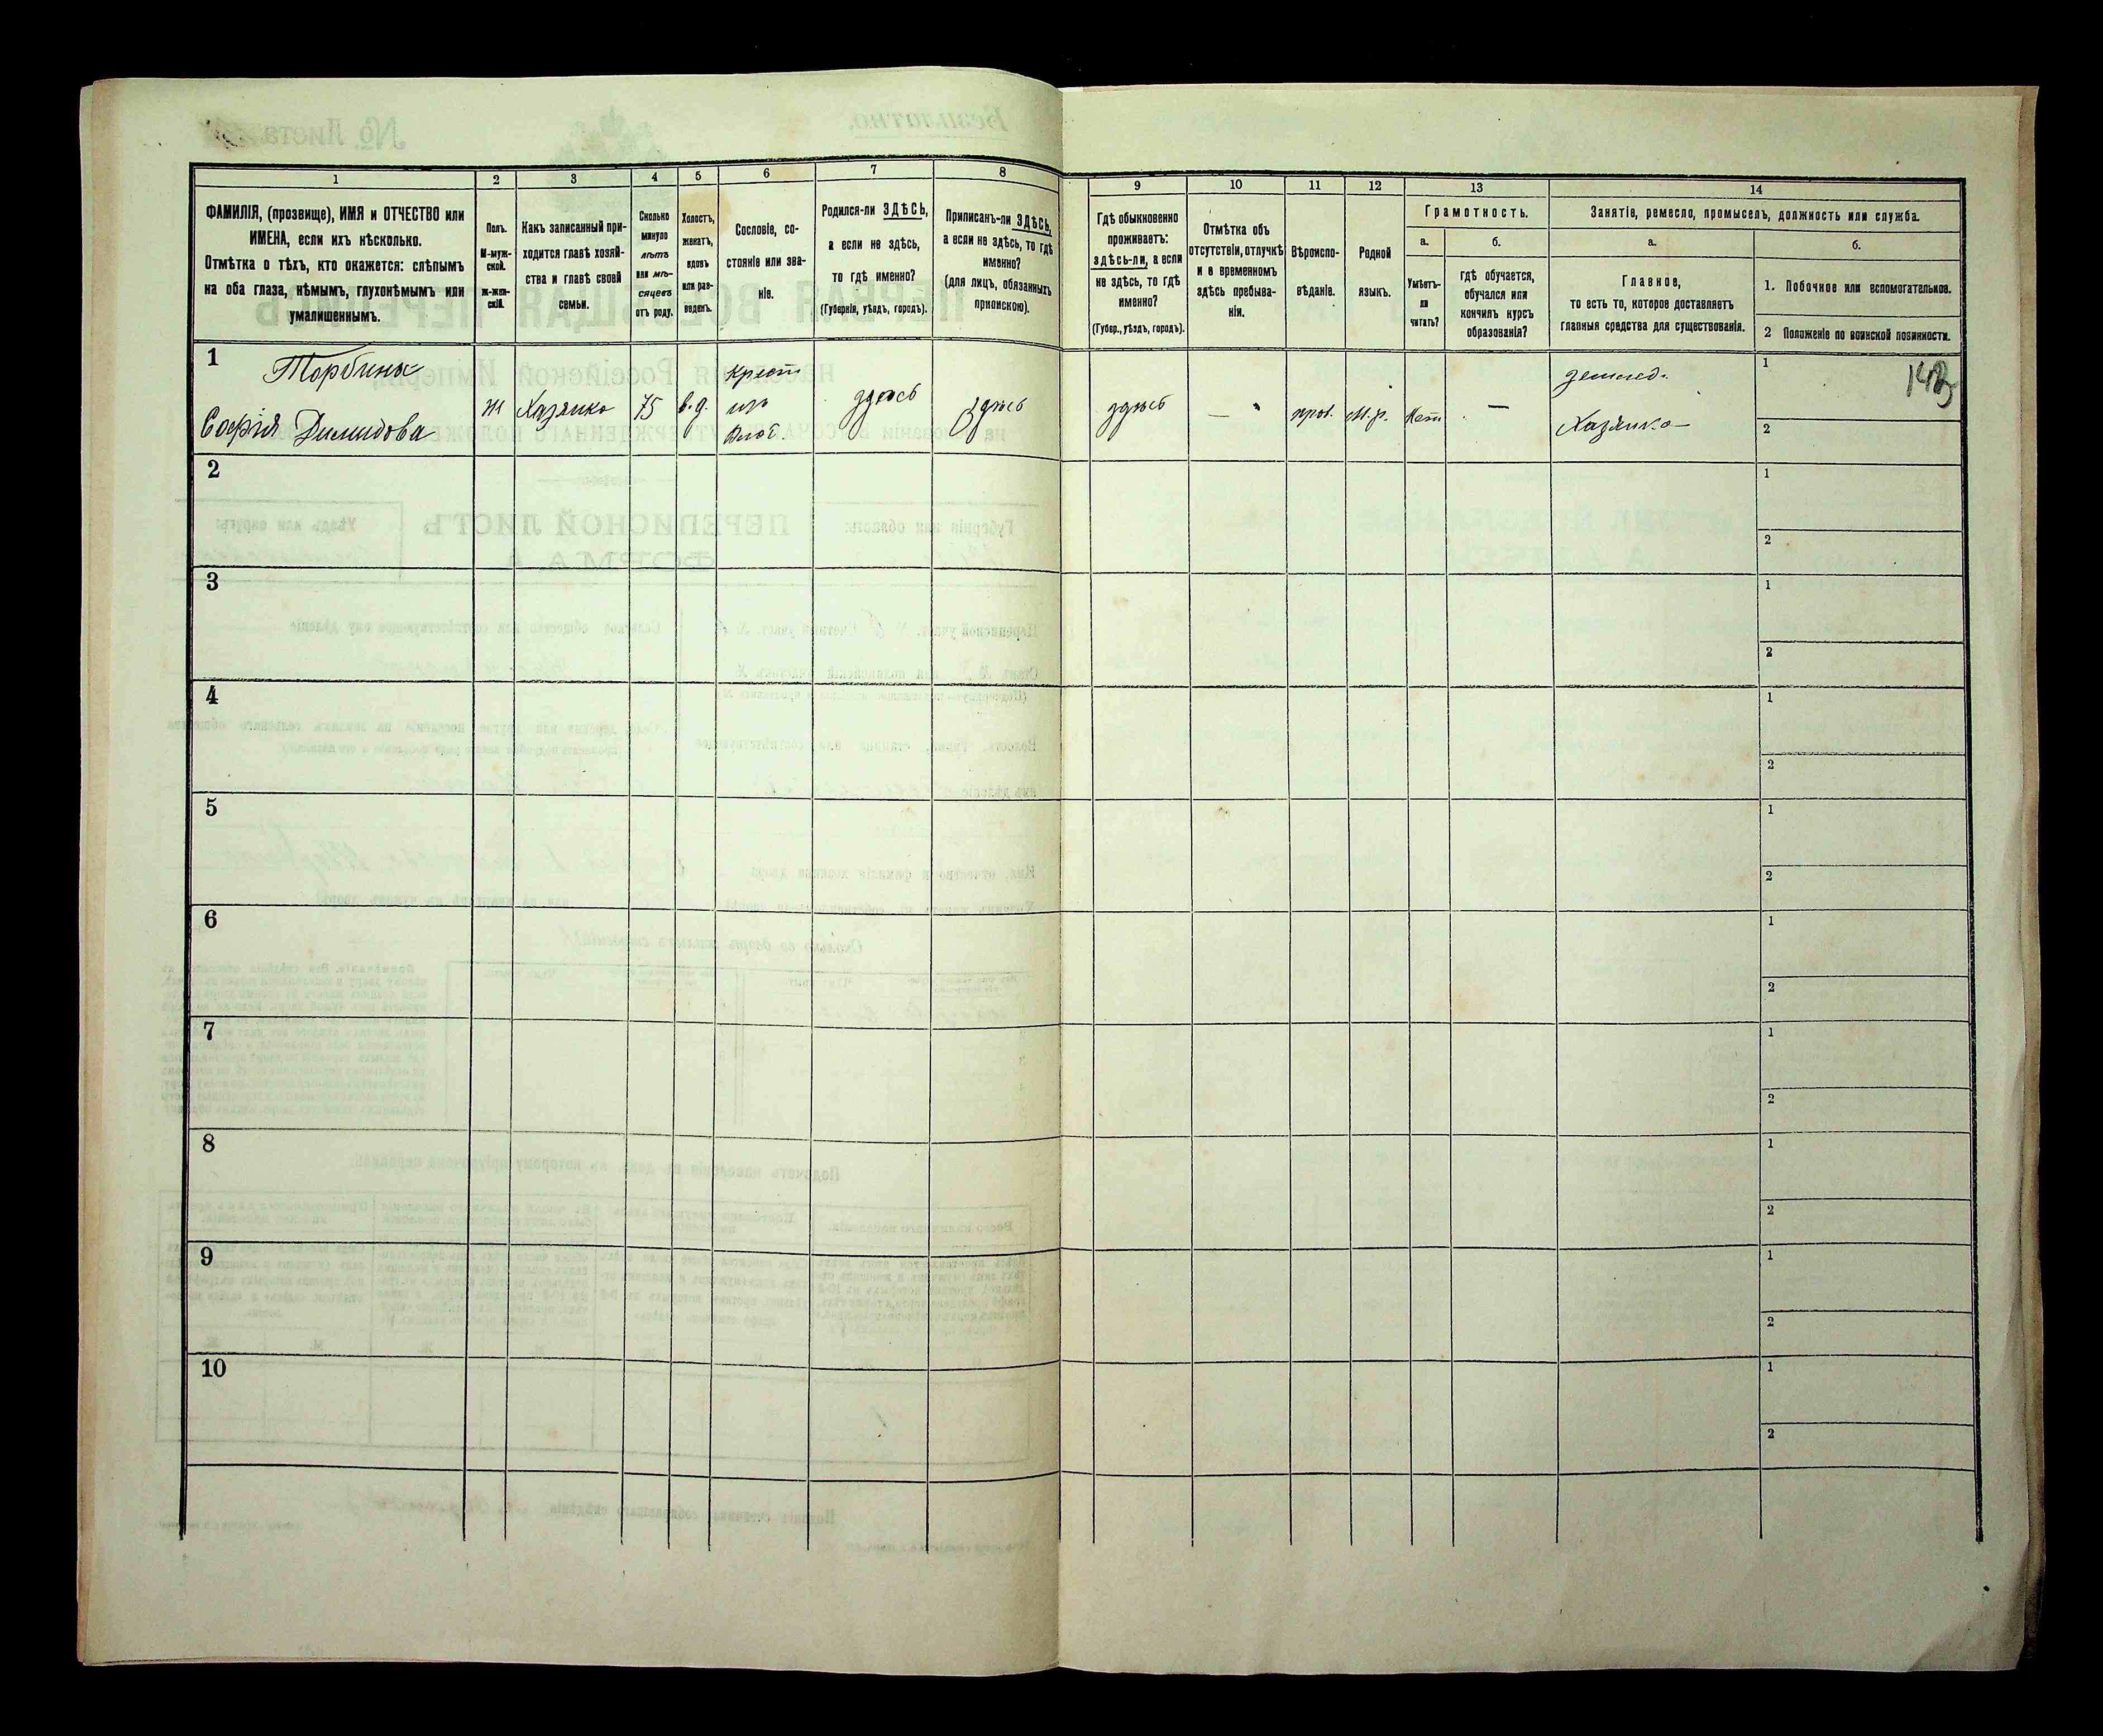 1
2
3
4
5
6
7
8
ФАМИЛІЯ, (прозвище), ИМЯ и ОТЧЕСТВО или
ИМЕНА, если ихъ нѣсколько.
Отмѣтка о тѣхъ, кто окажется: слѣпымъ
на оба глаза, нѣмымъ, глухонѣмымъ или
умалишеннымъ.
Полъ.
М-муж-
ской.
ж-жен-
скій.
Какъ записанный при-
ходится главѣ хозяй-
ства и главѣ своей
семьи.
Сколько
минуло
лѣтъ
или мѣ-
сяцевъ
отъ роду.
Холостъ,
женатъ,
вдовъ
или раз-
веденъ.
Сословіе, со-
стояніе или зва-
ніе.
Родился-ли ЗДѢСЬ,
а если не здѣсь,
то гдѣ именно?
(Губернія, уѣздъ, городъ).
Приписанъ-ли ЗДѢСЬ,
а если не здѣсь, то гдѣ
именно?
(для лицъ, обязанныхъ
припискою).
9
10
11
12
13
14
Гдѣ обыкновенно
проживаетъ:
здѣсь-ли, а если
не здѣсь, то гдѣ
именно?
(Губер., уѣздъ, городъ).
Отмѣтка объ
отсутствіи, отлучкѣ
и о временномъ
здѣсь пребыва-
ніи.
Вѣроиспо-
вѣданіе.
Родной
языкъ.
Грамотность.
а.
Умѣетъ-
ли
читать?
б.
гдѣ обучается,
обучался или
кончилъ курсъ
образованія?
Занятіе, ремесло, промыселъ, должность или служба.
а.
Главное,
то есть то, которое доставляетъ
главныя средства для существованія.
б.
1. Побочное или вспомогательное.
2 Положеніе по воинской повинности.
1
Торбина
Софія Демидова
ж
Хазяика
75
в.д.
Крест
изъ
здѣсь
здѣсь
здѣсь
—
прав.
М.р.
Нет
—
землед.
Хазяика
1
2
2
1
2
3
1
2
4
1
2
5
1
2
6
1
2
7
1
2
8
1
2
9
1
2
10
1
2